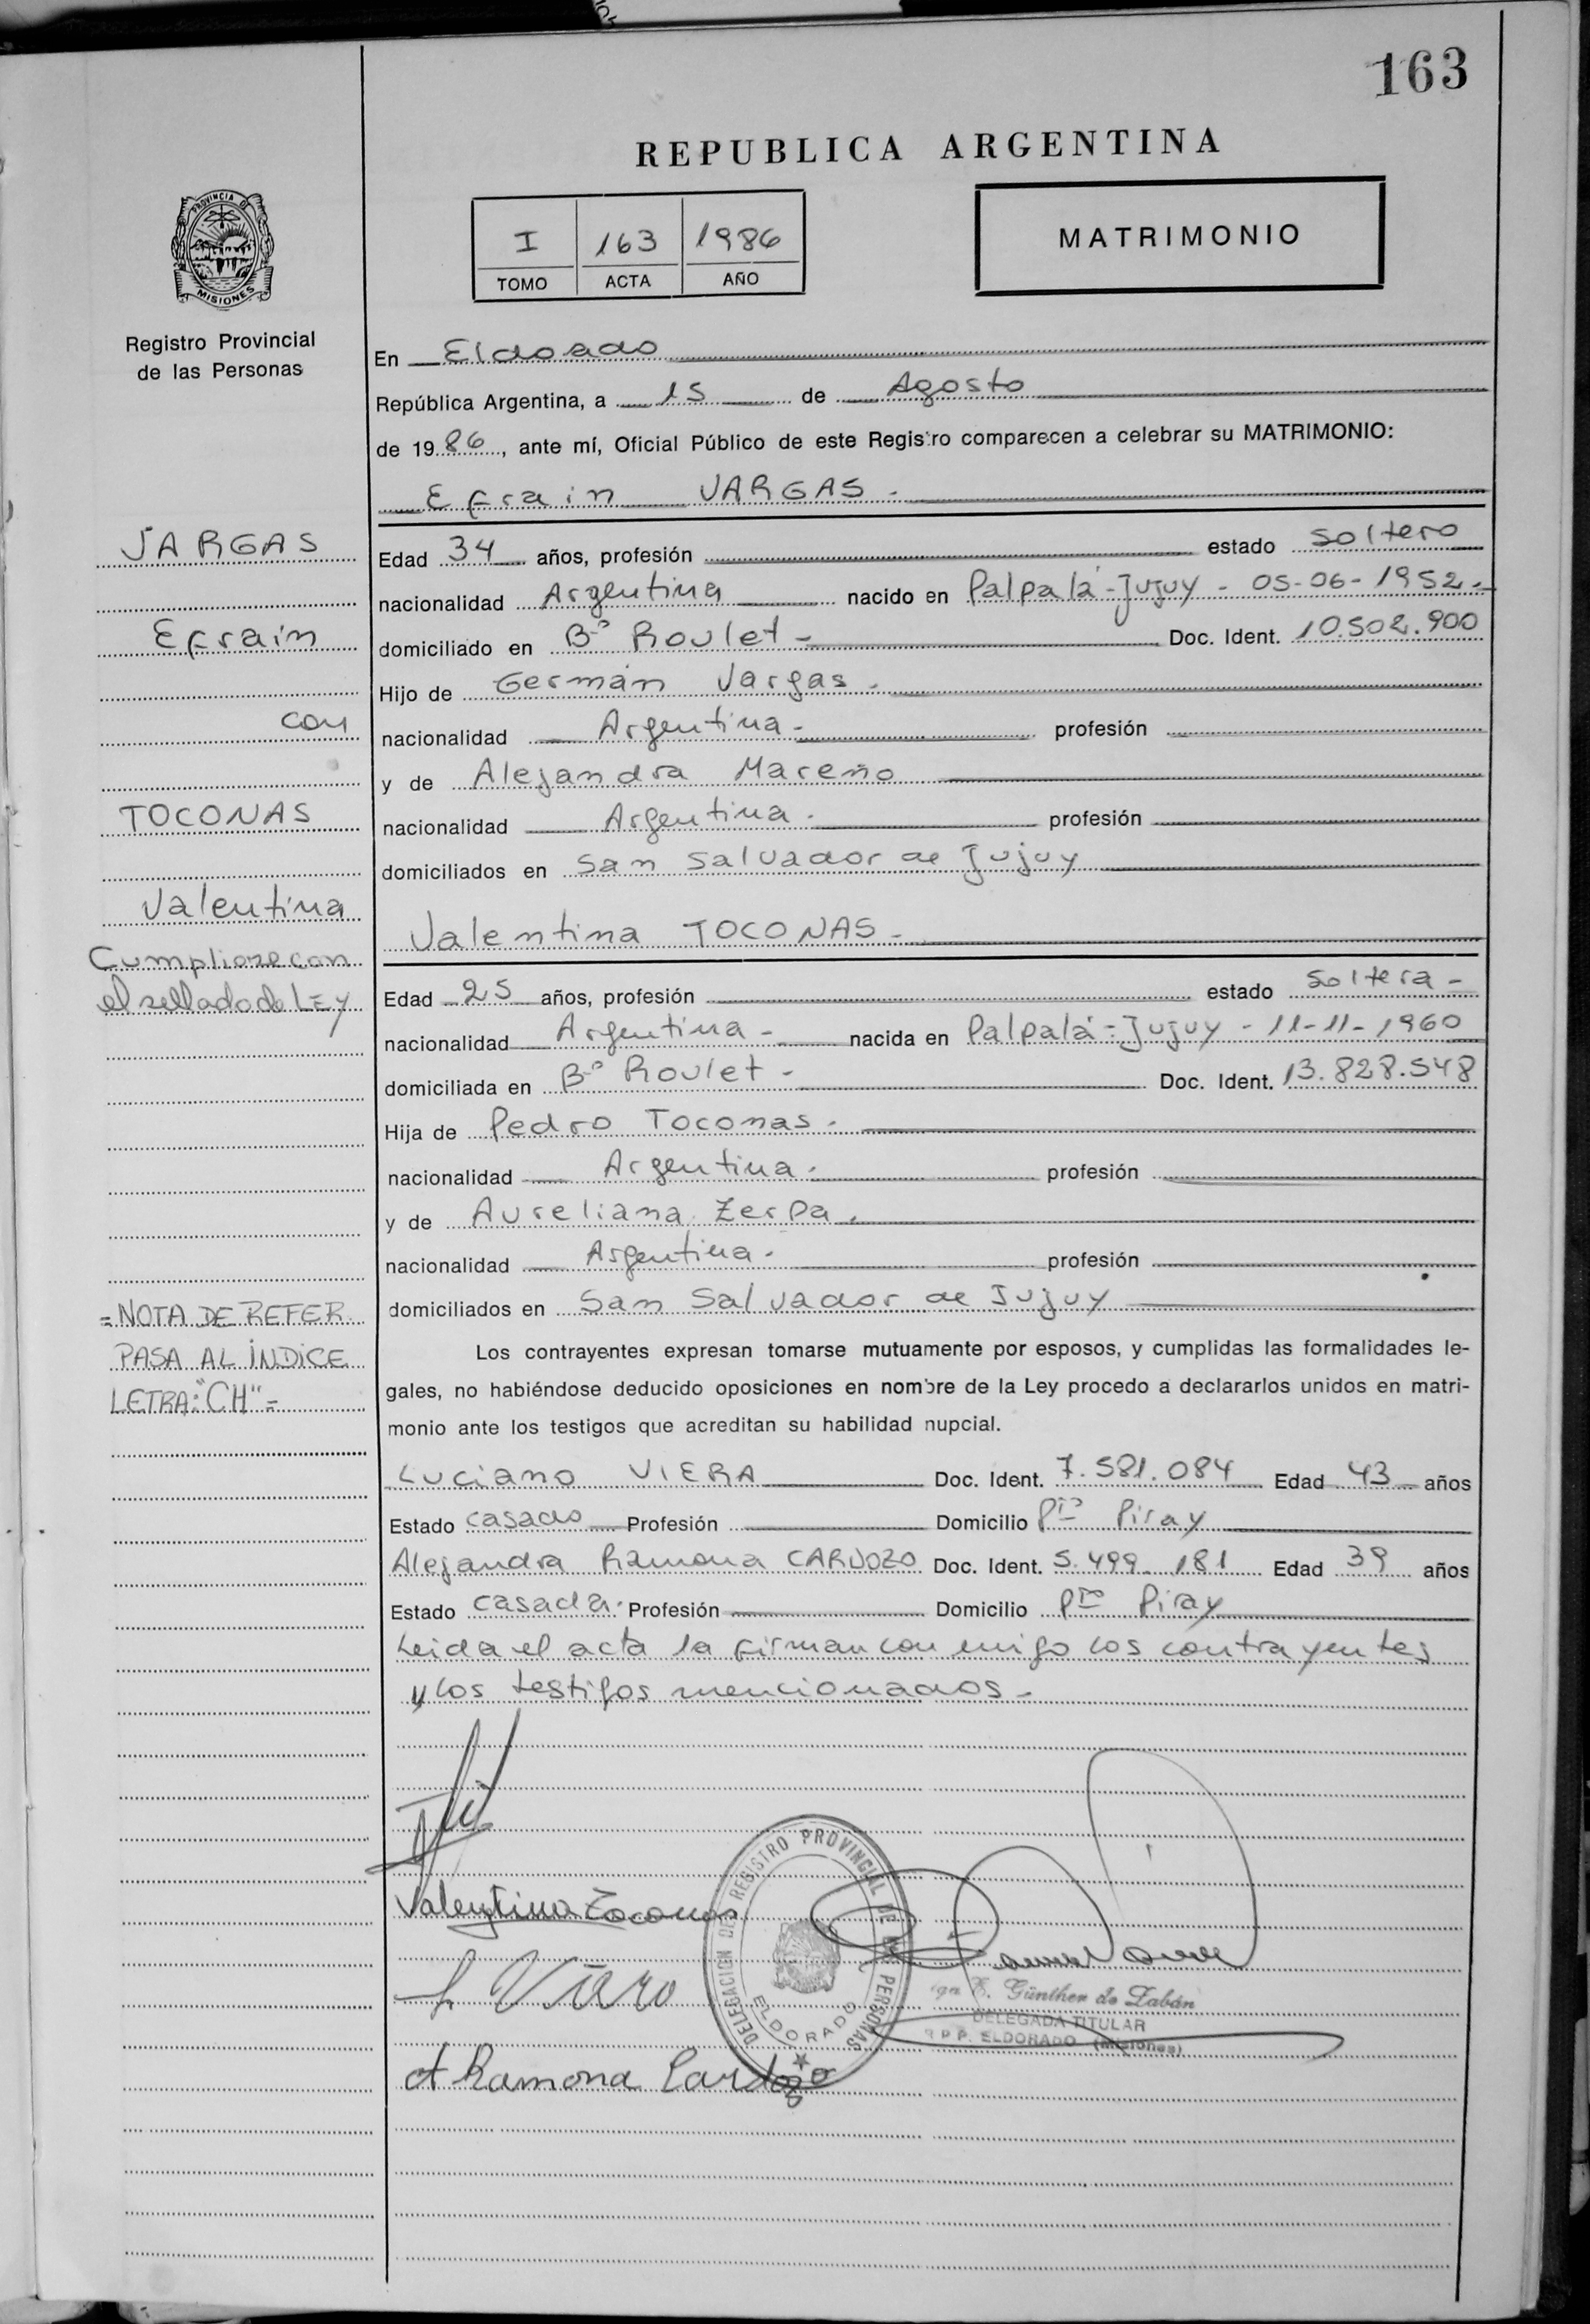 163
REPUBLICA ARGENTINA
PROVINCIA DE
MISIONES
Registro Provincial
de las Personas
I 163 1986
TOMO ACTA AÑO
MATRIMONIO
En Eldorado
República Argentina, a 15 de Agosto
de 1986, ante mí, Oficial Público de este Registro comparecen a celebrar su MATRIMONIO:
Efrain VARGAS -
VARGAS
Efrain
con
TOCONAS
Valentina
Cumpliose con
el sellado de LEY
= NOTA DE REFER.
PASA AL ÍNDICE
LETRA: "CH" =
Edad 34 años, profesión estado Soltero
nacionalidad Argentina nacido en Palpalá - Jujuy - 05-06-1952 -
domiciliado en B° Roulet - Doc. Ident. 10.502.900
Hijo de Germán Vargas -
nacionalidad Argentina - profesión
y de Alejandra Mareño
nacionalidad Argentina - profesión
domiciliados en San Salvador de Jujuy
Valentina TOCONAS -
Edad 25 años, profesión estado Soltera -
nacionalidad Argentina - nacida en Palpalá - Jujuy - 11-11-1960
domiciliada en B° Roulet - Doc. Ident. 13.828.548
Hija de Pedro Toconas -
nacionalidad Argentina - profesión
y de Aureliana Zerpa -
nacionalidad Argentina - profesión
domiciliados en San Salvador de Jujuy
Los contrayentes expresan tomarse mutuamente por esposos, y cumplidas las formalidades le-
gales, no habiéndose deducido oposiciones en nombre de la Ley procedo a declararlos unidos en matri-
monio ante los testigos que acreditan su habilidad nupcial.
Luciano VIERA Doc. Ident. 7.581.084 Edad 43 años
Estado casado Profesión Domicilio Pto Piray
Alejandra Ramona CARDOZO Doc. Ident. 5.499.181 Edad 39 años
Estado casada - Profesión Domicilio Pto Piray
Leida el acta la firman con migo los contrayentes
y los testigos mencionados -
Valentina Toconas
L Viera
A Ramona Cardozo
DELEGACION DEL REGISTRO PROVINCIAL DE LAS PERSONAS
ELDORADO
E. Günther de Zabán
DELEGADA TITULAR
R P P. ELDORADO (Misiones)